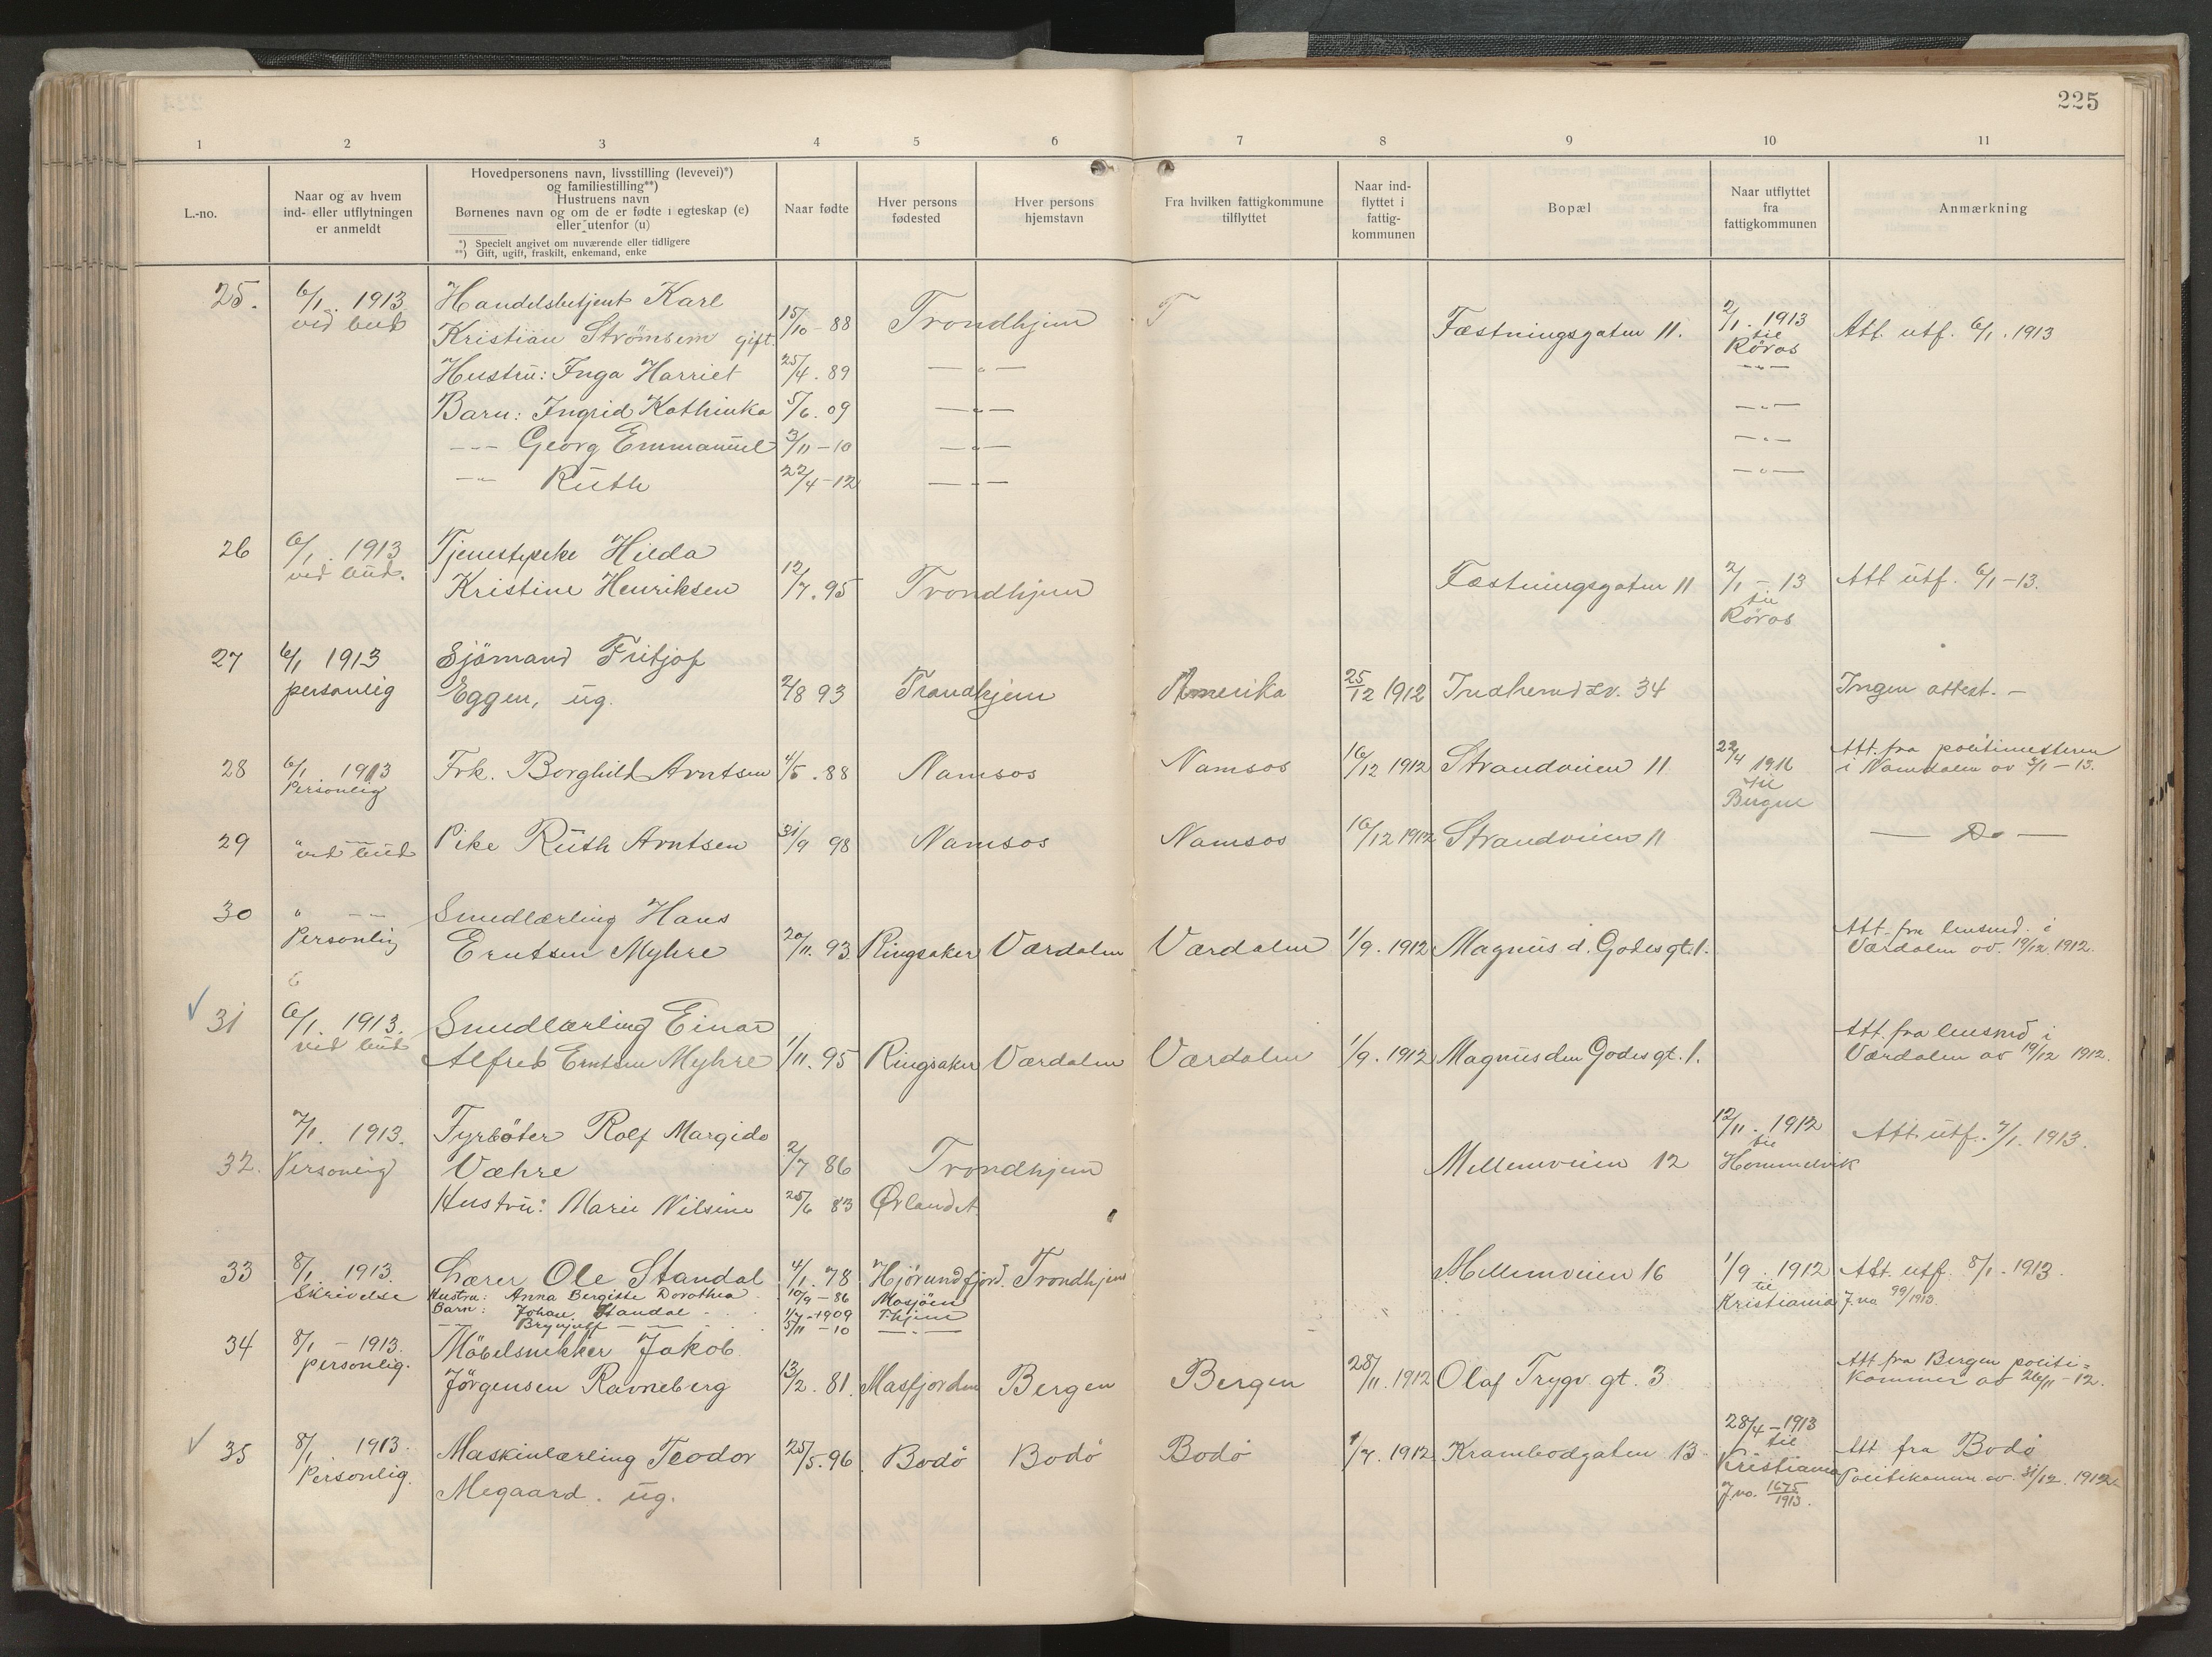 225
1 2 3 4 5 6 7 8 9 10 11
L.-no.
Naar og av hvem
ind- eller utflytningen
er anmeldt
Hovedpersonens navn, livsstilling (levevei)*)
og familiestilling**)
Hustruens navn
Børnenes navn og om de er fødte i egteskap (e)
eller utenfor (u)
*) Specielt angivet om nuværende eller tidligere
**) Gift, ugift, fraskilt, enkemand, enke
Naar fødte
Hver persons
fødested
Hver persons
hjemstavn
Fra hvilken fattigkommune
tilflyttet
Naar ind-
flyttet i
fattig-
kommunen
Bopæl
Naar utflyttet
fra
fattigkommunen
Anmærkning
25. 6/1. 1913 Handelsbetjent Karl
ved bud Kristian Strömsem gift. 15/10 - 88 Trondhjem T Fæstningsgaten 11. 2/1. 1913 Att. utf. 6/1. 1913
til
Röros
Hustru: Inga Harriet 25/4. 89 — " — — " —
Barn: Ingrid Kathinka 5/6. 09 — " — — " —
— Georg Emmanuel 3/11 - 10 — " — — " —
— " Ruth 22/4 - 12 — " — — " —
26 6/1. 1913 Tjenestepike Hilda
ved bud. Kristine Henriksen 12/7. 95 Trondhjem Fæstningsgaten 11 2/1 - 13 Att utf. 6/1 - 13.
til
Röros
27 6/1 1913 Sjömand Fritjof
personlig Eggen, ug. 2/8 93 Trondhjem Amerika 25/12 1912 Indherredsv. 34 Ingen attest. —
28 6/1. 1913 Frk. Borghild Arntsen 4/5. 88 Namsos Namsos 16/12 1912 Strandveien 11 22/4 1916 Att. fra politimesteren
Personlig til i Namdalen av 3/1 - 13.
Bergen
29 " ved bud Pike Ruth Arntsen 31/9 98 Namsos Namsos 16/12 1912 Strandveien 11 — Do —
30 " — — Smedlærling Hans
Personlig Erntsen Myhre 20/11. 93 Ringsaker Værdalen Værdalen 1/9. 1912 Magnus d. Godes gt. 1. Att. fra lensmd. i
Værdalen av. 19/12 1912.
31 6/1. 1913. Smedlærling Einar
ved bud Alfred Erntsen Myhre 1/11. 95 Ringsaker Værdalen Værdalen 1/9. 1912 Magnus den Godes gt. 1. Att. fra lensmd i
Værdalen av 19/12 1912.
7/1. 1913. Fyrböter Rolf Margido 12/11. 1912 Att. utf. 7/1. 1913.
32. Personlig Væhre 2/7 86 Trondhjem Mellemveien 12 til
Hommelvik
Hustru: Marie Nilsine 25/6 83 Ørlandet
33 8/1. 1913. Lærer Ole Standal 4/1. 78 Hjörundfjord. Trondhjem Mellemveien 16 1/9. 1912 Att. utf. 8/1. 1913.
Skrivelse Hustru: Anna Bergitte Dorothea 10/9 - 86 Mosjöen til
Barn: Johan Standal 1/7 - 1909 T.hjem Kristiania J.no 99/1913.
— — Brynjulf — — 5/11 - 10 — " —
34 8/1 - 1913. Möbelsnekker Jakob
personlig. Jörgensen Ravneberg 13/2. 81. Masfjorden Bergen Bergen 28/11. 1912 Olaf Trygv. gt. 3 Att fra Bergen politi=
kammer av 26/11 - 12.
35 8/1 1913. Maskinlærling Teodor 25/5. 96 Bodö Bodö Bodö 1/7. 1912 Krambodgaten 13 28/4 - 1913 Att fra Bodö
Personlig. Megaard. ug. til Politikamm. av. 31/12. 1912
Kristiania
J.no. 1675/1913.